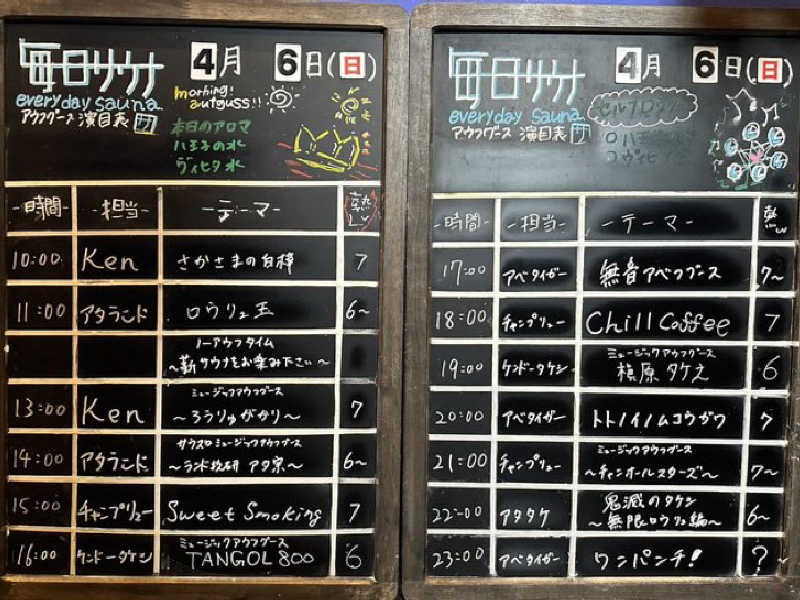 毎日サウナ 4月 6日(日)
everyday sauna
アウフグース 演目表
morning!
autguss!!
本日のアロマ
八王子の水
ヴィヒタ水
-時間- -担当- -テーマ- 熱Lv
10:00 Ken さかさまの白樺 7
11:00 アタランド ロウリュ玉 6~
ノーアウフタイム
~薪サウナをお楽み下さい~
ミュージックアウフグース
13:00 Ken ~ろうりゅがかり~ 7
サウスロミュージックアウフグース
14:00 アタランド 6~
15:00 チャンプリュー Sweet Smoking 7
ミュージックアウフグース
16:00 ケンドータケシ TANGOL 800 6
毎日サウナ 4月 6日(日)
everyday sauna
アウフグース 演目表
セルフロウリュ
-時間- -担当- -テーマ- 熱Lv
17:00 アベタイガー 無音アベフグース 7~
18:00 チャンプリュー Chill Coffee 7
ミュージックアウフグース
19:00 ケンドータケシ 槇原タケえ 6
20:00 アベタイガー トトノイノムコウガワ 7
ミュージックアウフグース
21:00 チャンプリュー ~チャンオールスターズ~ 7~
鬼滅のタケシ
22:00 アタタケ ~無限ロウリュ編~ 6~
23:00 アベタイガー ワンパンチ! ?